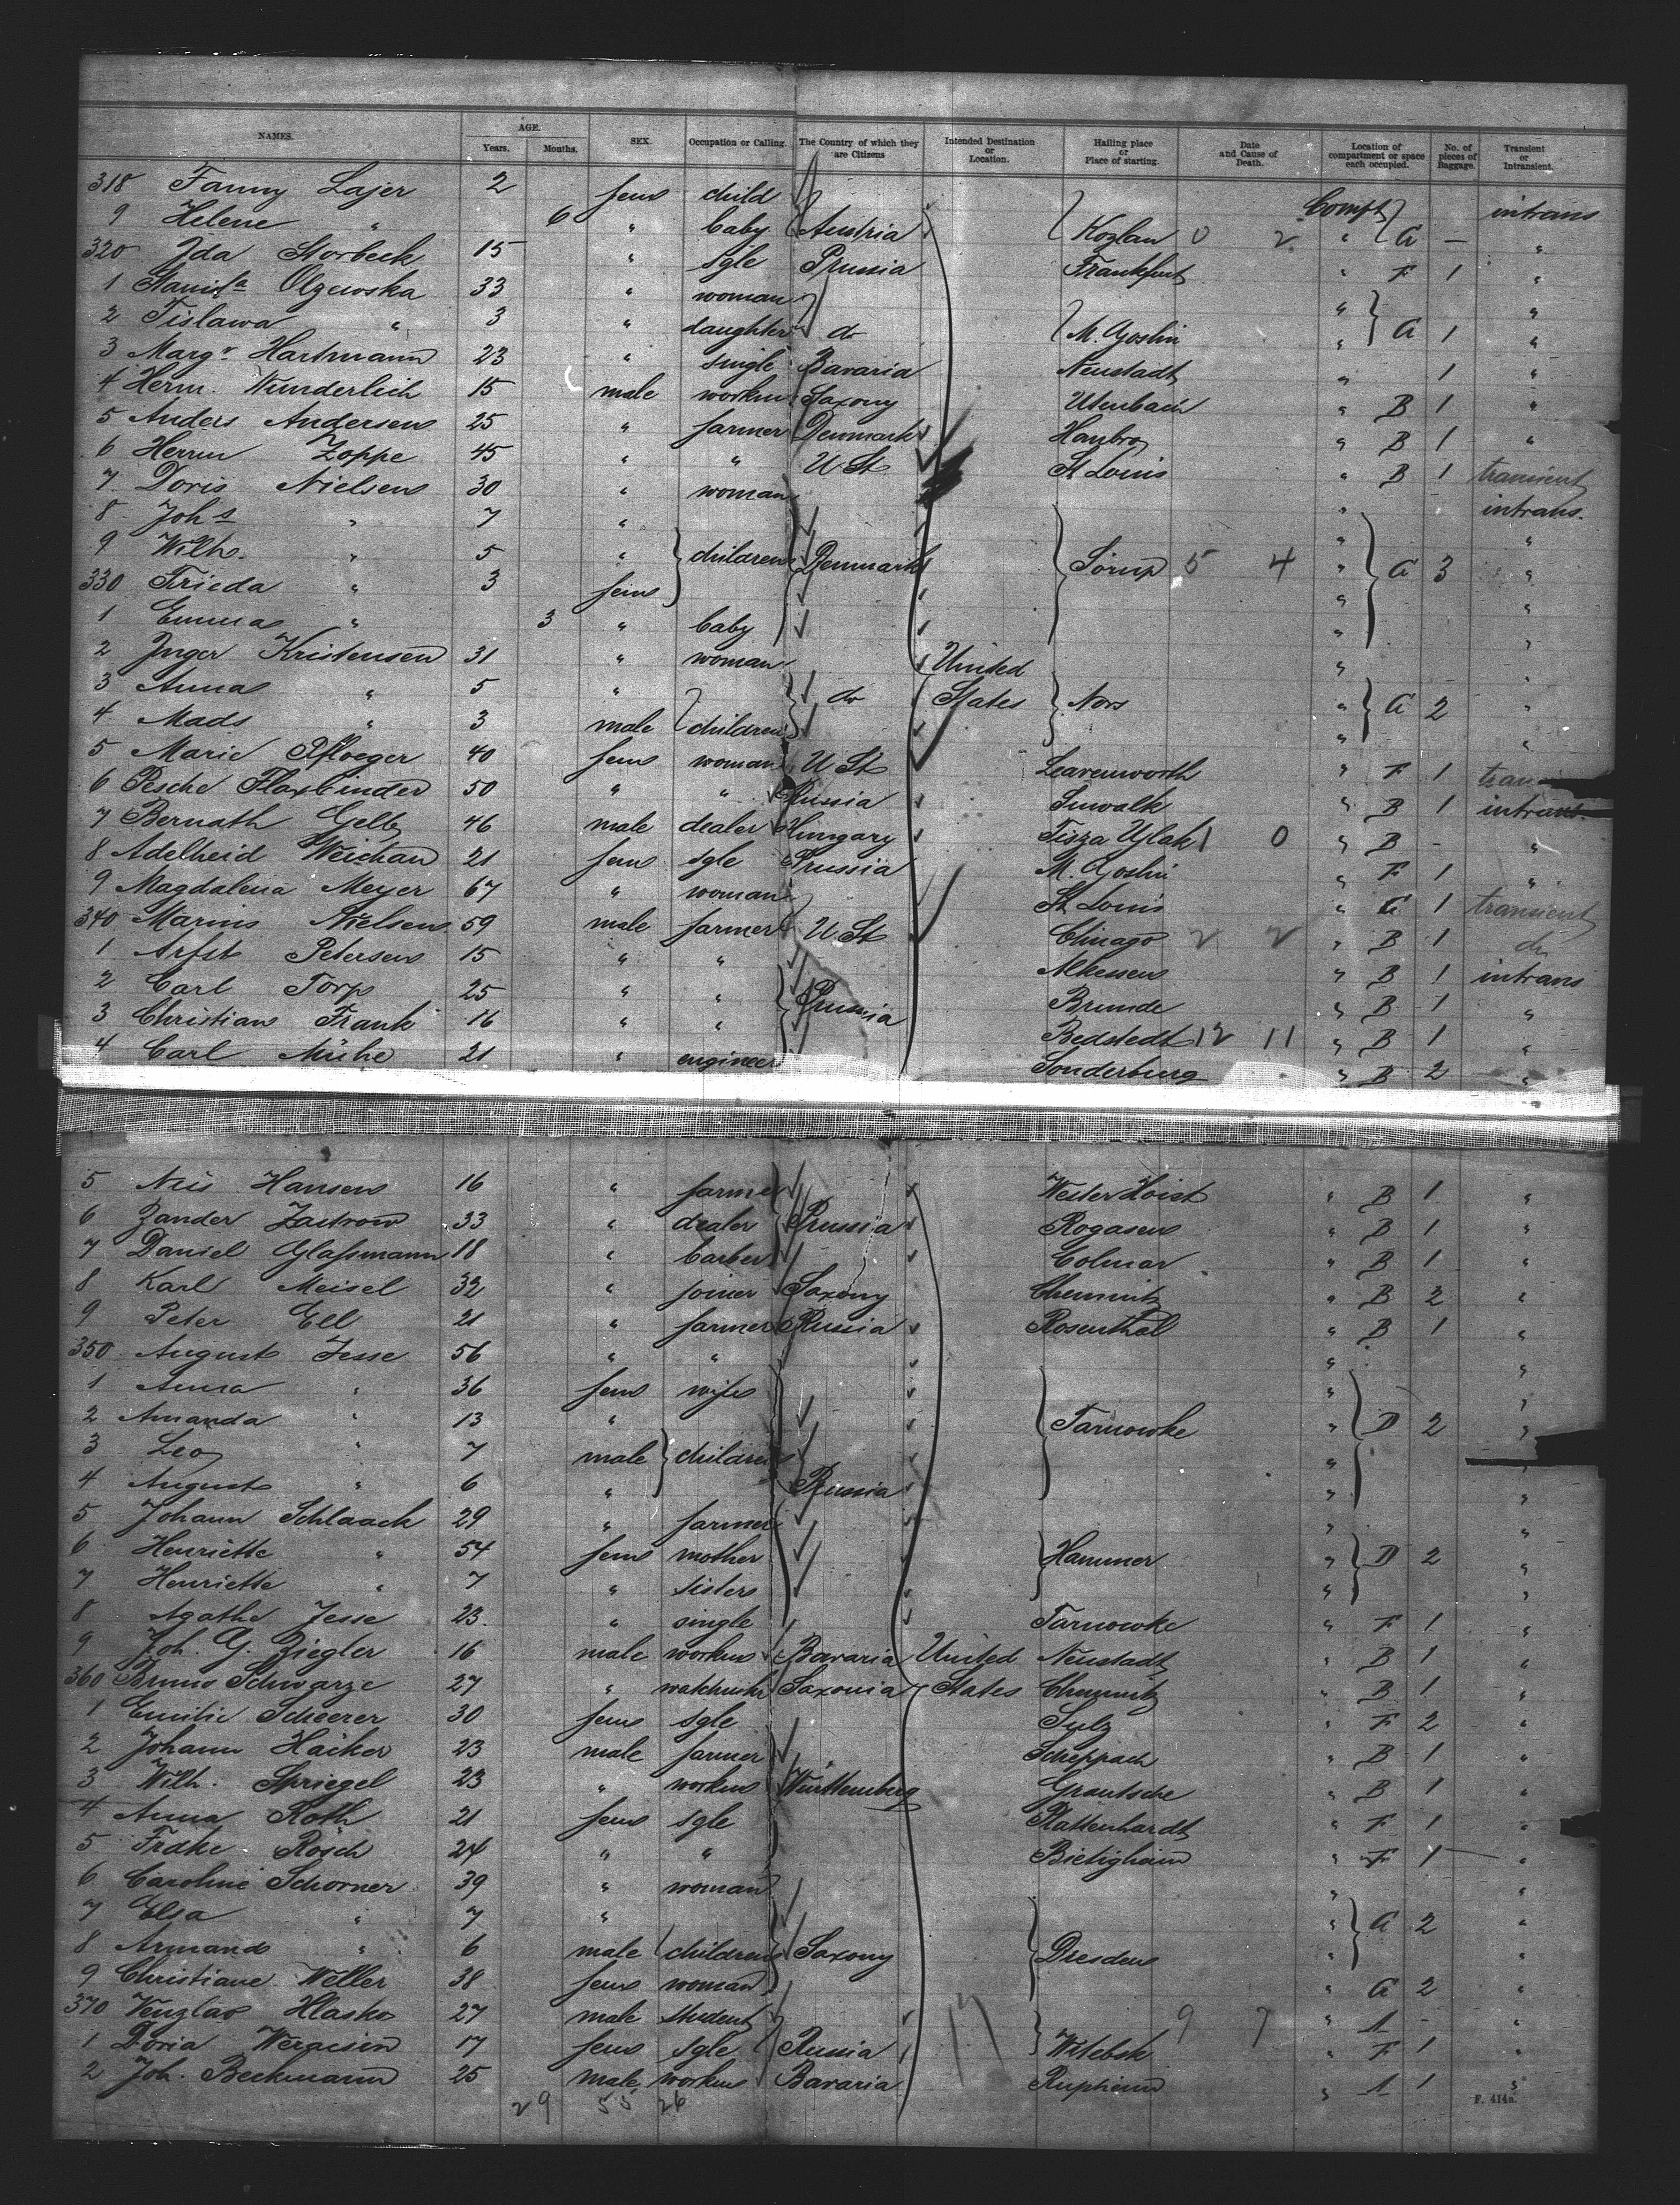 NAMES. AGE. Years. Months. SEX. Occupation or Calling. The Country of which they are Citizens Intended Destination or Location. Hailing place or Place of starting. Date and Cause of Death. Location of compartment or space each occupied. No. of pieces of Baggage. Transient or Intransient.
318 Fanny Lajer 2 fem child Compt intrans
9 Helene " 6 " baby Austria Kozlan 0 2 " A — "
320 Ida Storbeck 15 " sgle Prussia Frankfurt " F 1 "
1 Olzewska 33 " woman " "
2 Tislawa " 3 " daughter do M. Goslin " A 1 "
3 Margr Hartmann 23 " single Bavaria Neustadt " 1 "
4 Herm. Wunderlich 15 male workm Saxony Utenbach " B 1 "
5 Anders Andersen 25 " farmer Denmark Hanbro " B 1 "
6 Herm Zoppe 45 " " U St St Louis " B 1 transient
7 Doris Nielsen 30 " woman " intrans.
8 Johs " 7 " " "
9 Wilh. " 5 " children Denmark Sörup 5 4 " A 3 "
330 Frieda " 3 fem " "
1 Emma " 3 " baby " "
2 Inger Kristensen 31 " woman United " "
3 Anna " 5 " do States Nors " A 2 "
4 Mads " 3 male children " "
5 Marie Pfloeger 40 fem woman U St Leavenworth " F 1 tran
6 Pesche Flaxbinder 50 " " Russia Suwalk " B 1 intrans.
7 Bernath Gelb 46 male dealer Hungary Tisza Ujlak 1 0 " B - "
8 Adelheid Weichan 21 fem sgle Prussia M. Goslin " F 1 "
9 Magdalena Meyer 67 " woman St Louis " A 1 transient
340 Marius Nielsen 59 male farmer U St Chicago 2 2 " B 1 do
1 Arfst Petersen 15 " " Alkessen " B 1 intrans
2 Carl Torp 25 " " Prussia Brunde " B 1 "
3 Christian Frank 16 " " Bedstedt 12 11 " B 1 "
4 Carl Mühe 21 " engineer Sonderburg " B 2 "
5 Nis Hansen 16 " farmer Wester Hoist " B 1 "
6 Zander Zastrow 33 " dealer Prussia Rogasen " B 1 "
7 Daniel Glaßmann 18 " barber Colmar " B 1 "
8 Karl Meisel 32 " joiner Saxony Chemnitz " B 2 "
9 Peter Ell 21 " farmer Russia Rosenthal " B 1 "
350 August Jesse 56 " " " "
1 Anna " 36 fem wife " "
2 Amanda " 13 " Tarnowke " D 2 "
3 Leo " 7 male children " "
4 August " 6 " Russia " "
5 Johann Schlaack 29 " farmer " "
6 Henriette " 54 fem mother Hammer " D 2 "
7 Henriette " 7 " sister " "
8 Agathe Jesse 23 " single Tarnowke " F 1 "
9 Joh. G. Ziegler 16 male workm Bavaria United Neustadt " B 1 "
360 Bruno Schwarze 27 " Saxonia States Chemnitz " B 1 "
1 Emilie Scheerer 30 fem sgle Sulz " F 2 "
2 Johann Haiker 23 male farmer Scheppach " B 1 "
3 Wilh. Spriegel 23 " workm Württemberg Grantsche " B 1 "
4 Anna Roth 21 fem sgle Plattenhardt " F 1 "
5 Frdke Rösch 24 " " Bietigheim " F 1 "
6 Caroline Schorner 39 " woman " "
7 Elsa " 7 " " A 2 "
8 Armand " 6 male children Saxony Dresden " "
9 Christiane Weller 38 fem woman " A 2 "
370 Venzlav Hlasko 27 male student 9 7 " A - "
1 Doria Weraisin 17 fem sgle Russia Witebsk " F 1 "
2 Joh. Beckmann 25 male workm Bavaria Rupheim " A 1 "
29 55 26
F. 414a.